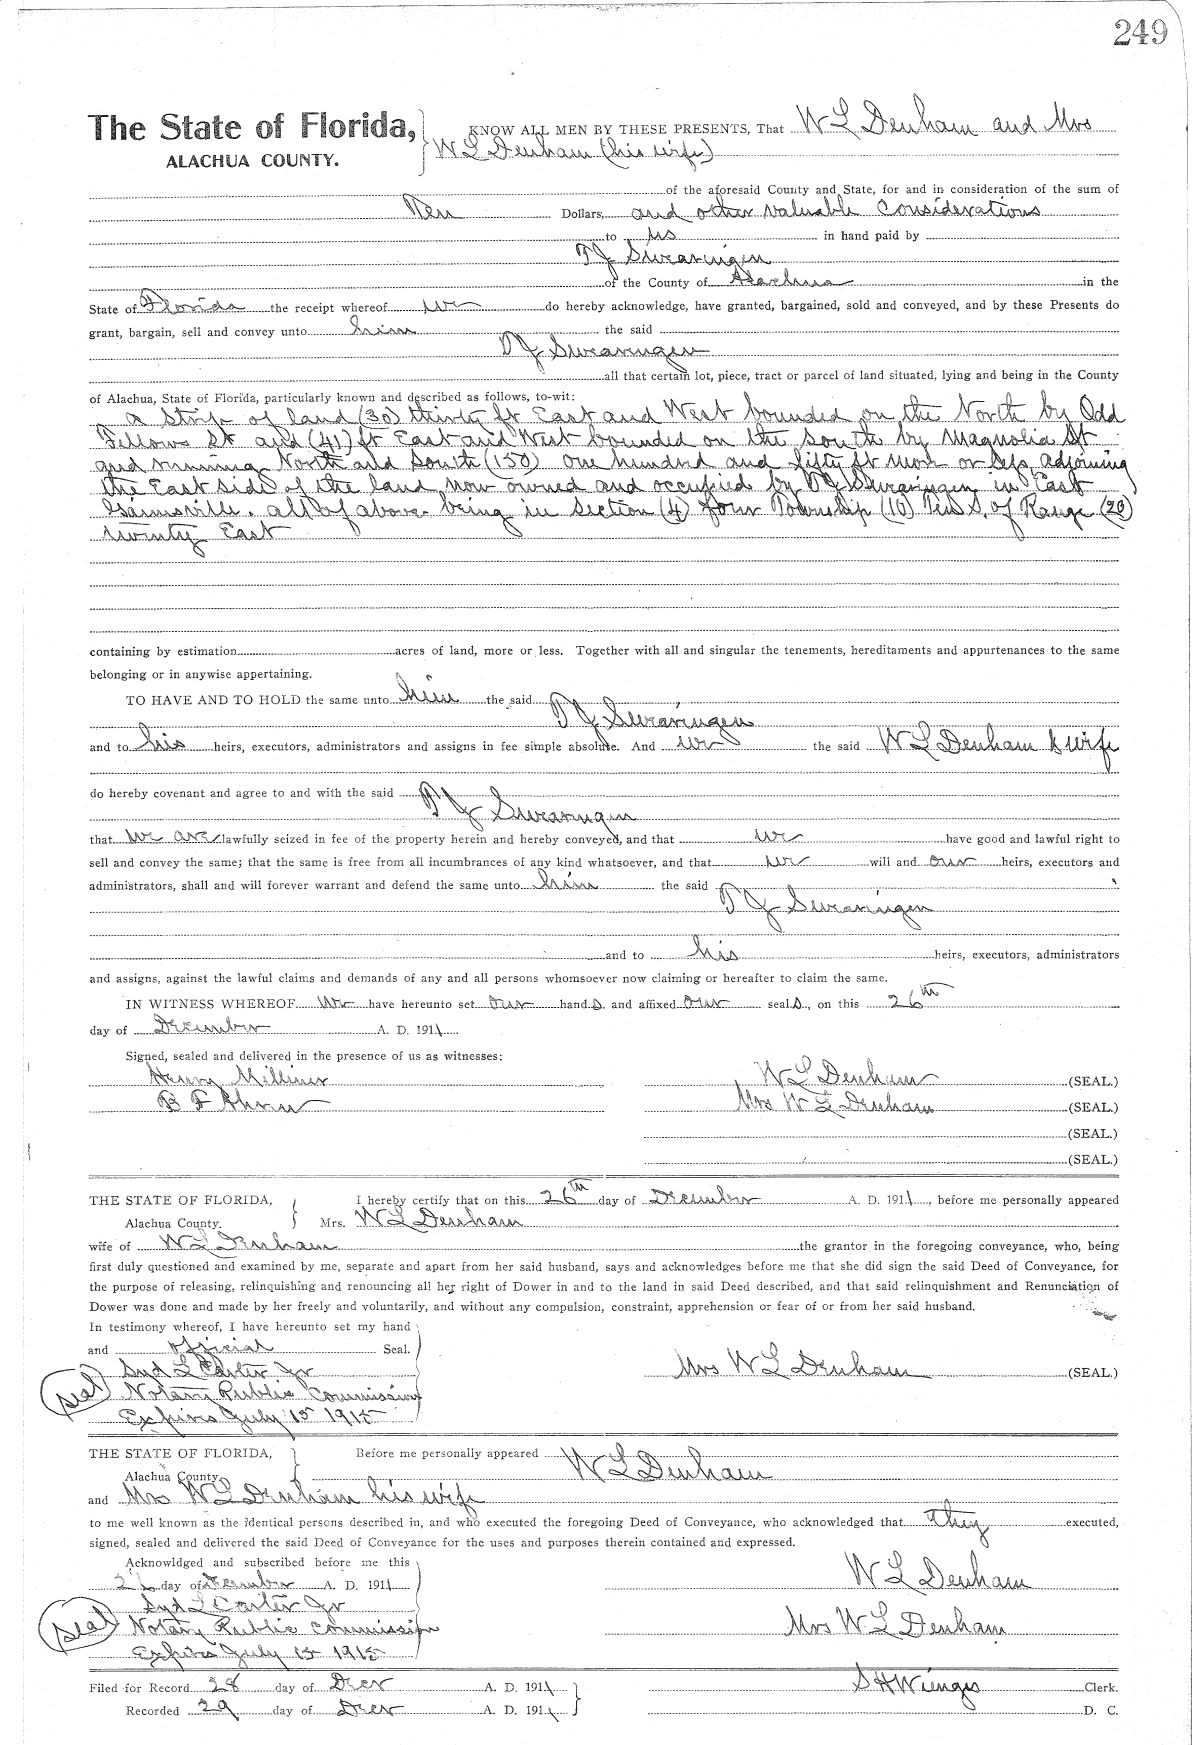 249
The State of Florida, KNOW ALL MEN BY THESE PRESENTS, That W L Denham and Mrs
ALACHUA COUNTY. W L Denham (his wife)
of the aforesaid County and State, for and in consideration of the sum of
Ten Dollars, and other valuable Considerations
to us in hand paid by
T J Swearingen
of the County of Alachua in the
State of Florida the receipt whereof we do hereby acknowledge, have granted, bargained, sold and conveyed, and by these Presents do
grant, bargain, sell and convey unto him the said
T J Swearingen
all that certain lot, piece, tract or parcel of land situated, lying and being in the County
of Alachua, State of Florida, particularly known and described as follows, to-wit:
A Strip of land (30) thirty ft East and West bounded on the North by Odd
Fellows St and (41) ft East and West bounded on the South by Magnolia St
and running North and South (150) one hundred and fifty ft more or less, adjoining
the East side of the land now owned and occupied by T J Swearingen in East
Gainesville. all of above being in Section (4) four Township (10) Ten S. of Range (20)
twenty East
containing by estimation acres of land, more or less. Together with all and singular the tenements, hereditaments and appurtenances to the same
belonging or in anywise appertaining.
TO HAVE AND TO HOLD the same unto him the said
T J Swearingen
and to his heirs, executors, administrators and assigns in fee simple absolute. And we the said W L Denham & wife
do hereby covenant and agree to and with the said T J Swearingen
that we are lawfully seized in fee of the property herein and hereby conveyed, and that we have good and lawful right to
sell and convey the same; that the same is free from all incumbrances of any kind whatsoever, and that we will and our heirs, executors and
administrators, shall and will forever warrant and defend the same unto him the said
T J Swearingen
and to his heirs, executors, administrators
and assigns, against the lawful claims and demands of any and all persons whomsoever now claiming or hereafter to claim the same.
IN WITNESS WHEREOF we have hereunto set our hands and affixed our seals, on this 26th
day of December A. D. 1911
Signed, sealed and delivered in the presence of us as witnesses:
Henry Milliner W L Denham (SEAL.)
B F Mrs W L Denham (SEAL.)
(SEAL.)
(SEAL.)
THE STATE OF FLORIDA, I hereby certify that on this 26th day of December A. D. 1911, before me personally appeared
Alachua County. Mrs. W L Denham
wife of W L Denham the grantor in the foregoing conveyance, who, being
first duly questioned and examined by me, separate and apart from her said husband, says and acknowledges before me that she did sign the said Deed of Conveyance, for
the purpose of releasing, relinquishing and renouncing all her right of Dower in and to the land in said Deed described, and that said relinquishment and Renunciation of
Dower was done and made by her freely and voluntarily, and without any compulsion, constraint, apprehension or fear of or from her said husband.
In testimony whereof, I have hereunto set my hand
and official Seal.
Syd L Carter Jr Mrs W L Denham (SEAL)
Seal Notary Public Commission
Expires July 15 1915
THE STATE OF FLORIDA, Before me personally appeared W L Denham
Alachua County
and Mrs W L Denham his wife
to me well known as the identical persons described in, and who executed the foregoing Deed of Conveyance, who acknowledged that they executed,
signed, sealed and delivered the said Deed of Conveyance for the uses and purposes therein contained and expressed.
Acknowldged and subscribed before me this
26 day of December A. D. 1911 W L Denham
Syd L Carter Jr
Seal Notary Public Commission Mrs W L Denham
Expires July 15 1915
Filed for Record 28 day of Decr A. D. 1911 S H Wienges Clerk.
Recorded 29 day of Decr A. D. 1911 D. C.